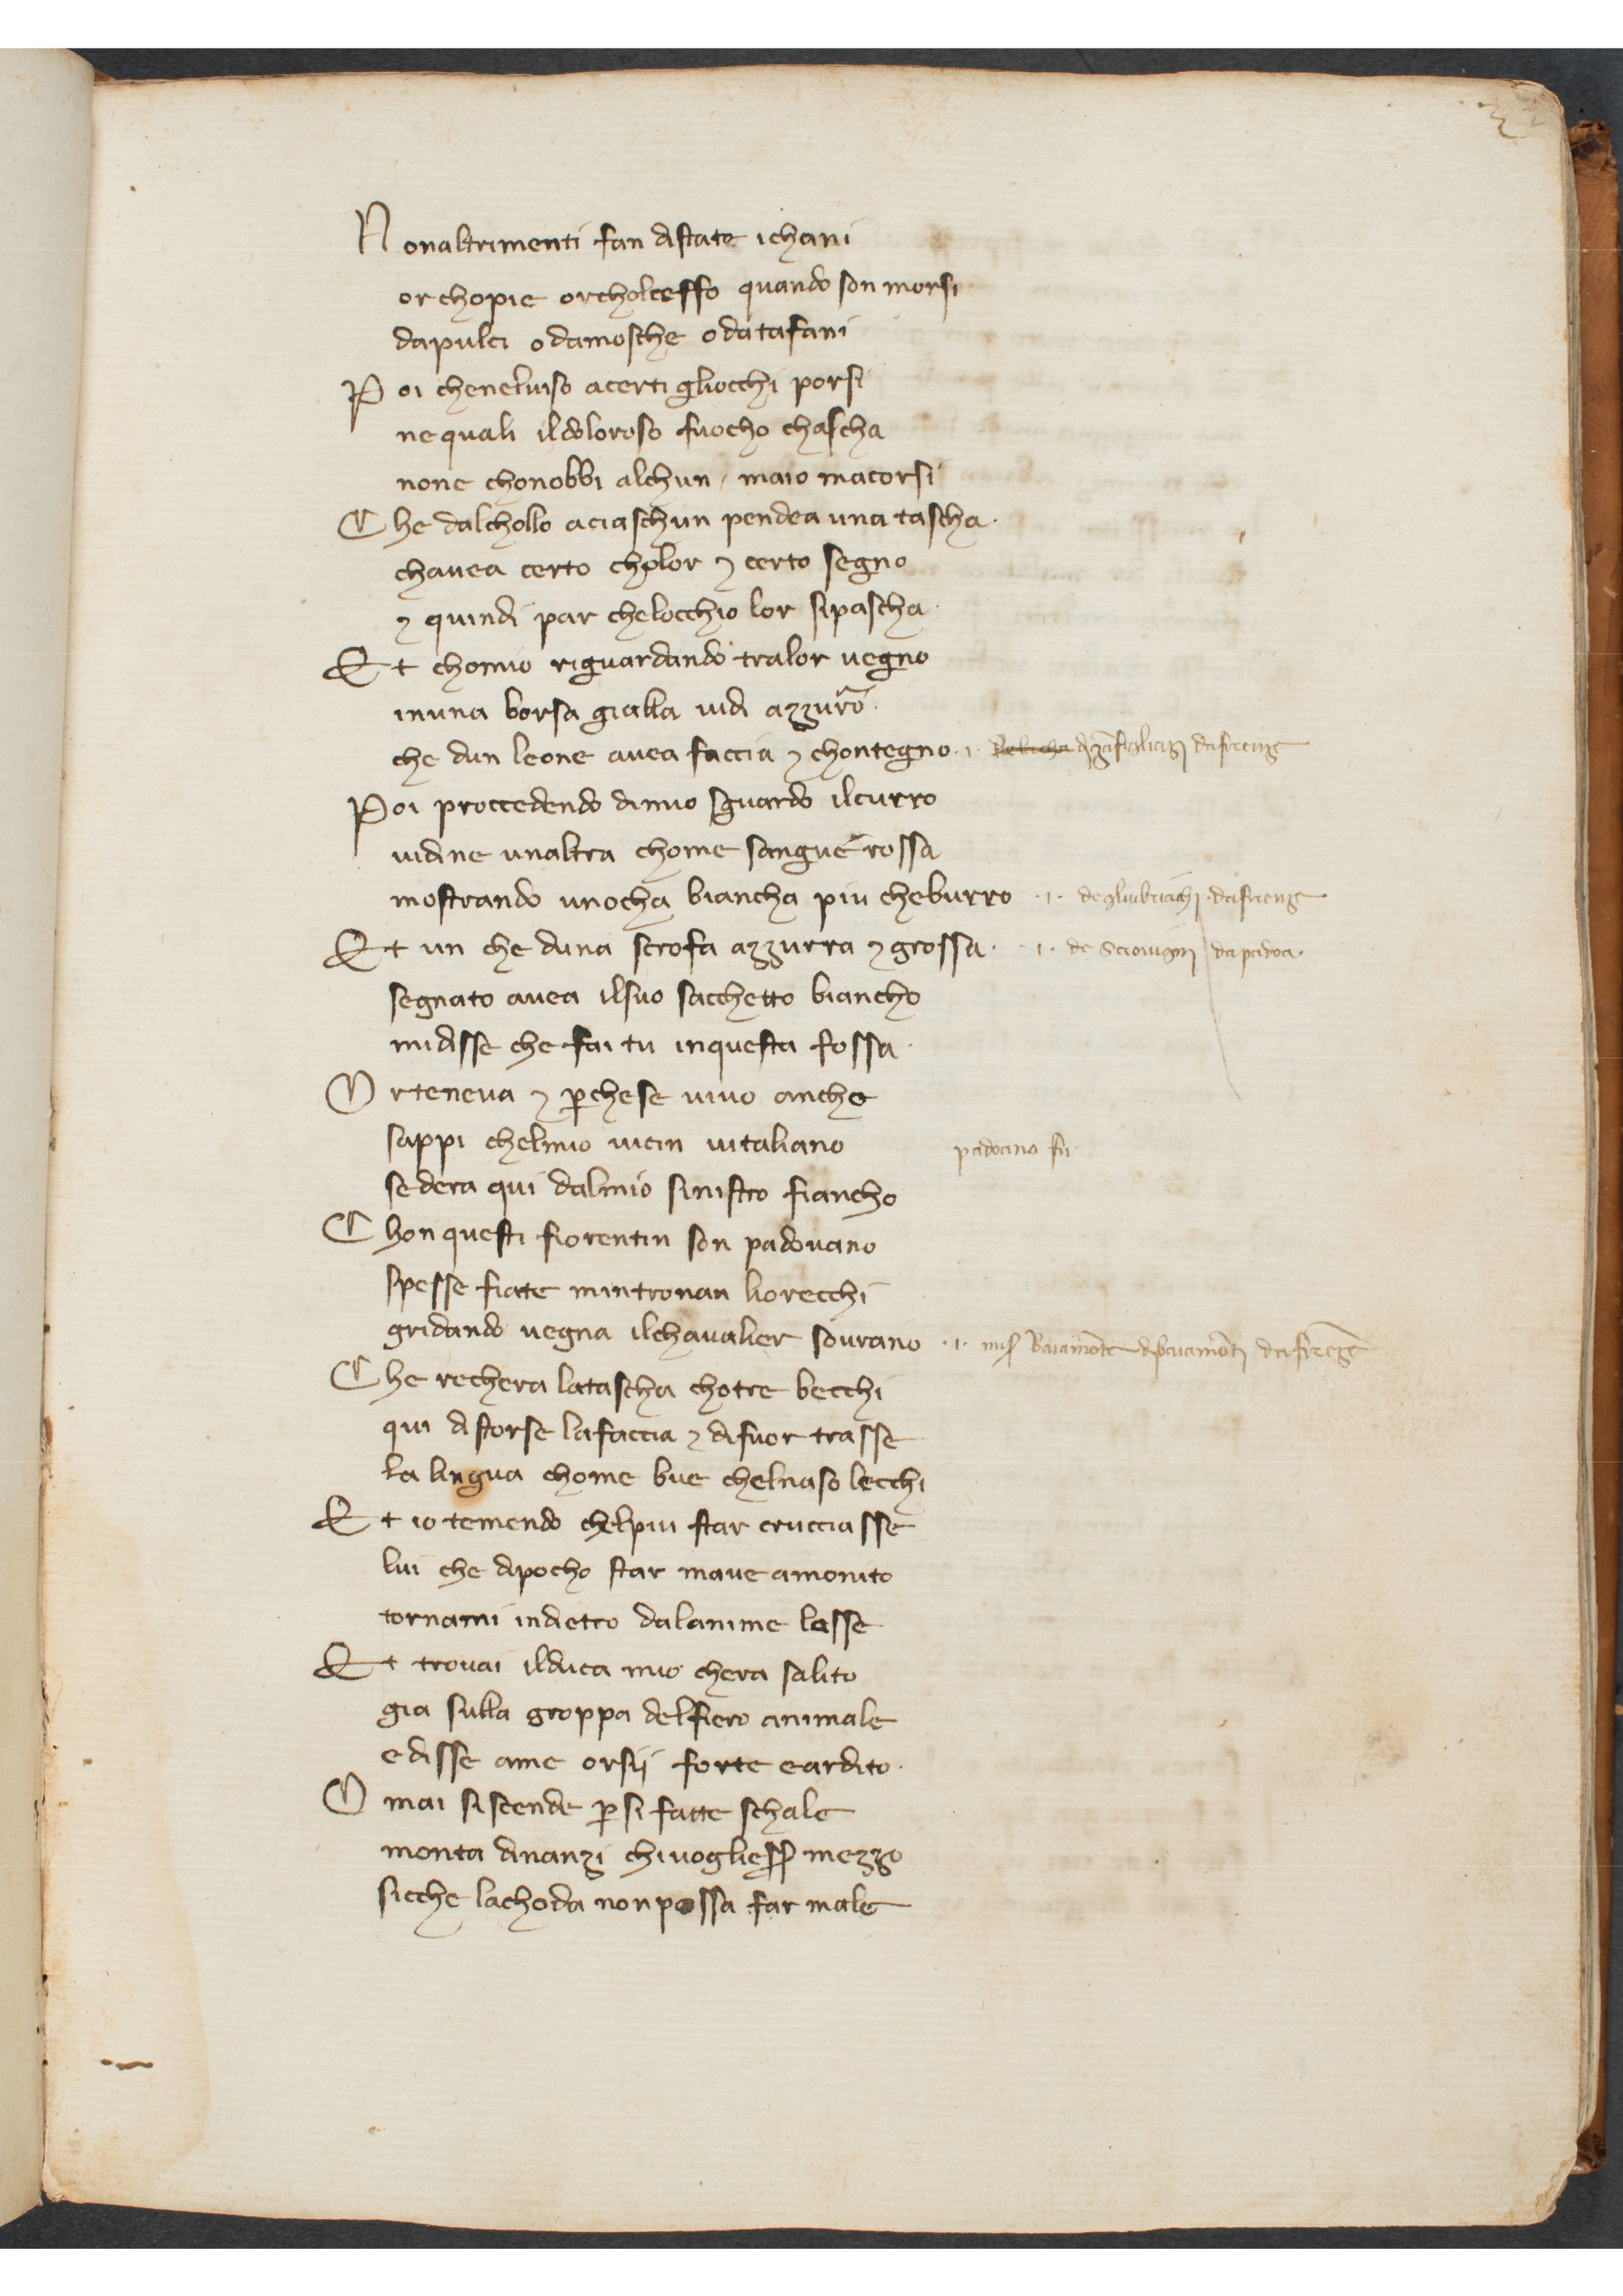 Non altrimenti fan distate ichani
or chopie or cholceffo quando son morsi
dapulci o damosche o datafani
Poi chenelviso acerti gliocchi porsi
ne quali ildoloroso fuocho chascha
none chonobbi alchun / maio macorsi
Che dalchollo aciaschun pendea una tascha.
chavea certo cholor ⁊ certo segno
⁊ quindi par chelocchio lor sipascha.
Et chomio riguardando tralor vegno
inuna borsa gialla vidi azzurro.
che dun leone avea faccia ⁊ chontegno. .i. da firenze
Poi proccedendo dimio sguardo ilcurro
vidine unaltra chome sangue rossa
mostrando unocha biancha piu cheburro .i. degliubriachi. dafirenze
Et un che duna scrofa azzurra ⁊ grossa. .i. de Scrovigni da padoa.
segnato avea ilsuo sacchetto biancho
midisse che fai tu inquesta fossa.
Or teneva ⁊ ꝑchese vivo ancho
sappi chelmio vicin vitaliano padoano fu.
sedera qui dalmio sinistro fiancho
Chon questi fiorentin son padovano
spesse fiate mintronan liorecchi
gridando vegna ilchavalier sovrano .i.
Che rechera latascha chotre becchi
qui distorse lafaccia ⁊ difuor trasse
la lingua chome bue chelnaso lecchi
Et io temendo chelpiu star crucciasse
lui che dipocho star mave amonito
tornami indietro dalanime lasse.
Et trovai ilduca mio chera salito
gia sulla groppa delfiero animale
e disse ame orsij forte eardito.
Omai siscende ꝑ si fatte schale
monta dinanzi chivoglie mezzo
sicche lachoda non possa far male